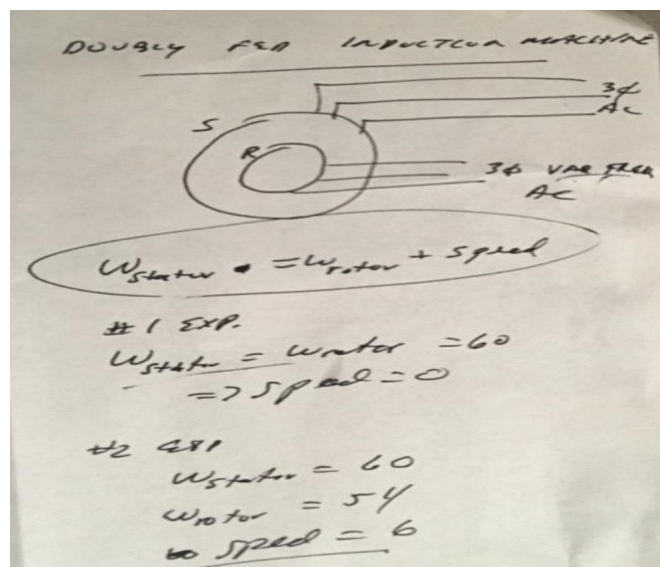 DOUBLY FED INDUCTION MACHINE
3φ
AC
S
R
3φ VAR FREQ
AC
W stator = W rotor + speed
#1 EXP.
W stator = W rotor = 60
=> speed = 0
#2 EXP
W stator = 60
W rotor = 54
speed = 6